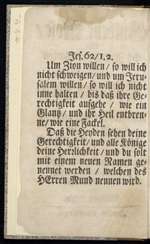 Jes. 62/1.2.
Um Zion willen / so will ich
nicht schweigen / und um Jeru-
salem willen / so will ich nicht
inne halten / biß daß ihre Ge-
rechtigkeit aufgehe / wie ein
Glantz / und ihr Heil entbren-
ne / wie eine Fackel.
Daß die Heyden sehen deine
Gerechtigkeit / und alle Könige
deine Herrlichkeit / und du solt
mit einem neuen Namen ge-
nennet werden / welchen des
HErren Mund nennen wird.